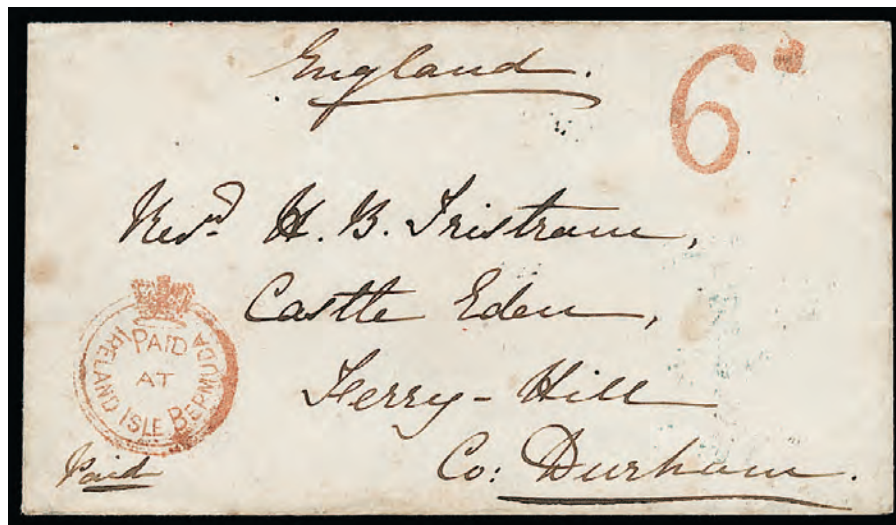 England.
6
Revd. H. B. Tristram,
Castle Eden,
Ferry-Hill
Co: Durham.
PAID
AT
IRELAND ISLE BERMUDA
Paid